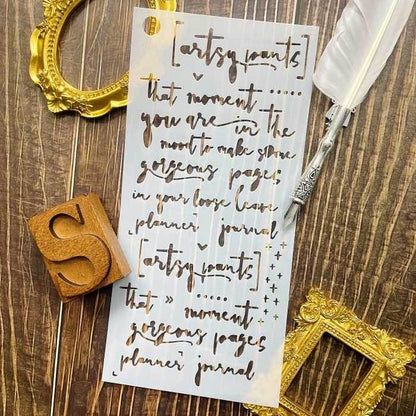 [artsy pants]
that moment .....
you are in the
mood to make some
gorgeous pages
in your loose leave
planner journal
[artsy pants]
that » .....
moment
gorgeous pages
planner journal
S